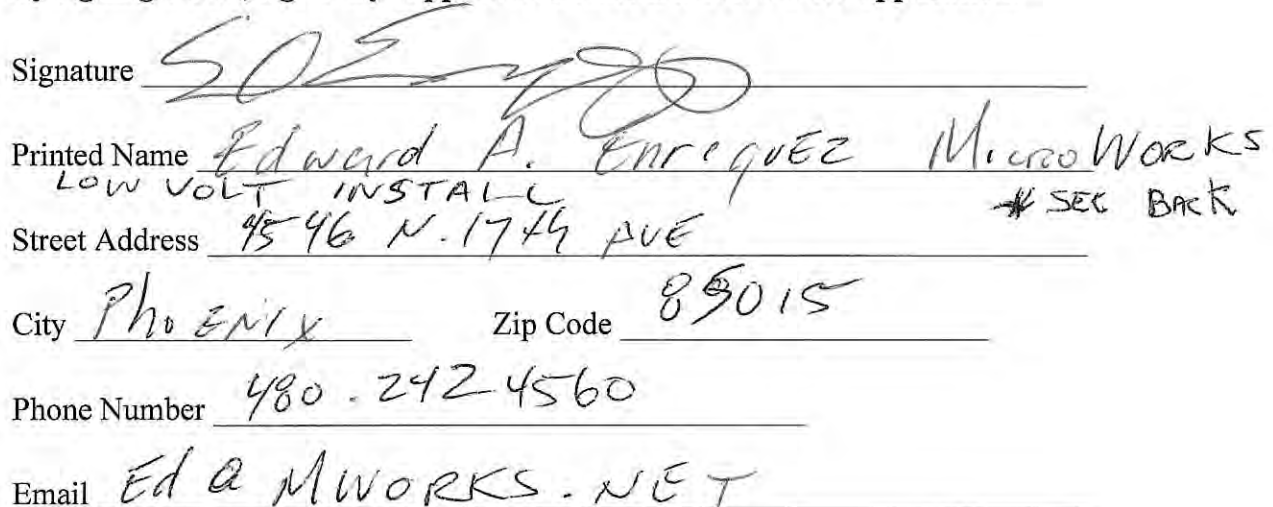 Signature
Printed Name Edward A. EnrequEz MicroWorks
LOW VOLT INSTALL * SEE BACK
Street Address 4546 N. 17th AVE
City PhoENix Zip Code 85015
Phone Number 480.242-4560
Email Ed @ MWORKS.NET